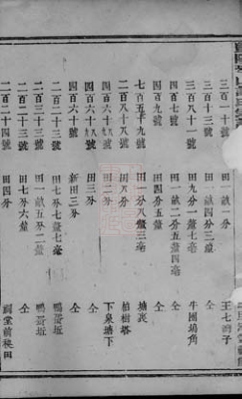 三百一十號 田一畝一分 仝 王七灣子
三百十三號 田一畝四分三釐 仝
三百八十一號 田九分一釐七毫 仝 牛團塢角
四百七號 田一畝二分五釐四毫 仝
四百六十號 田四分五釐 仝
七百五十九號 田一分八釐三毫 仝 塘裏
二百八十八號 田八分 仝 柏樹塔
四百六十八號 田二分 仝 下泉塘下
四百六十八號 田三分 仝
四百六十號 新田三分 仝
二百二十三號 田七分七釐七毫 仝 鴨蛋坵
二百二十三號 田一畝五分二釐 仝 鴨蛋坵
二百二十三號 田七分六釐 仝
二百二十四號 田四分 仝 祠堂前秧田